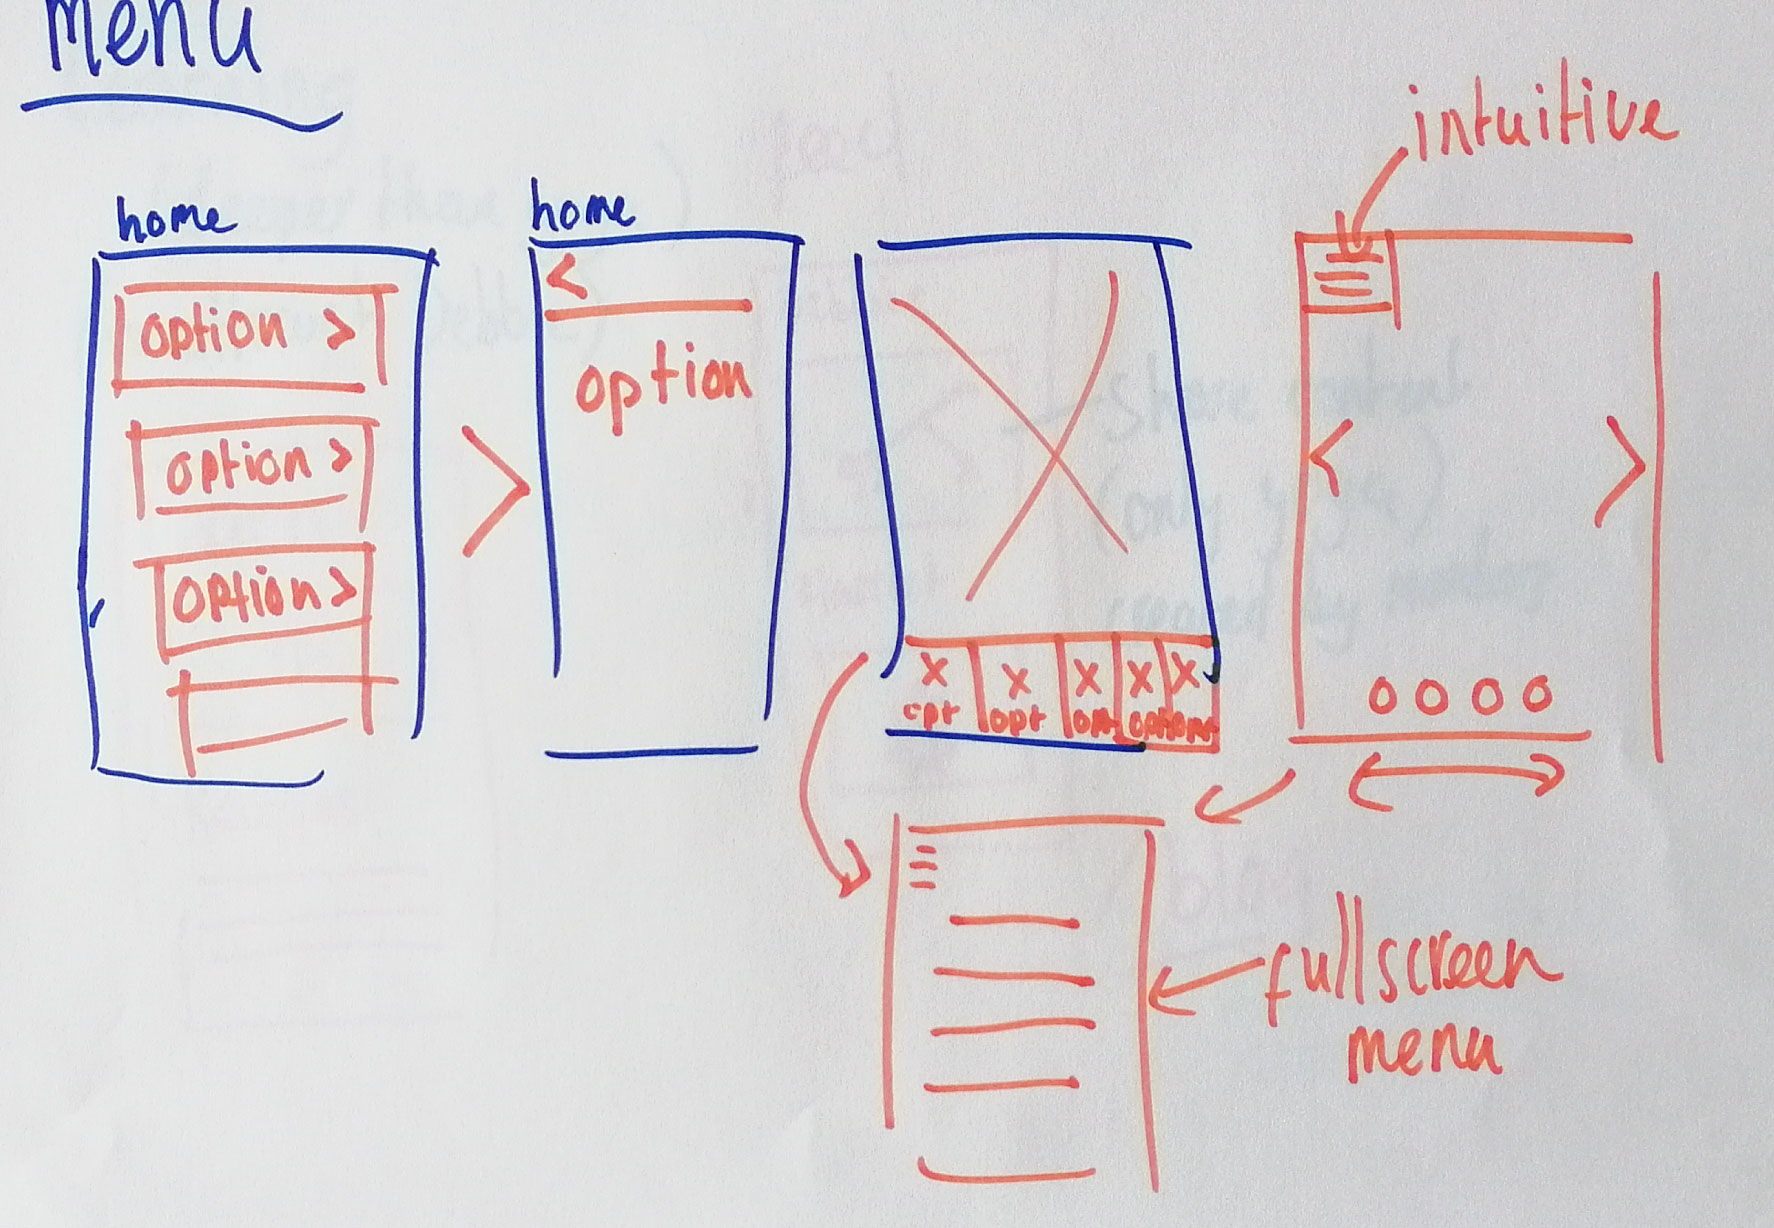 menu
home
option >
option >
option >
home
<
option
x x x x x
opt opt opt
intuitive
< >
fullscreen
menu